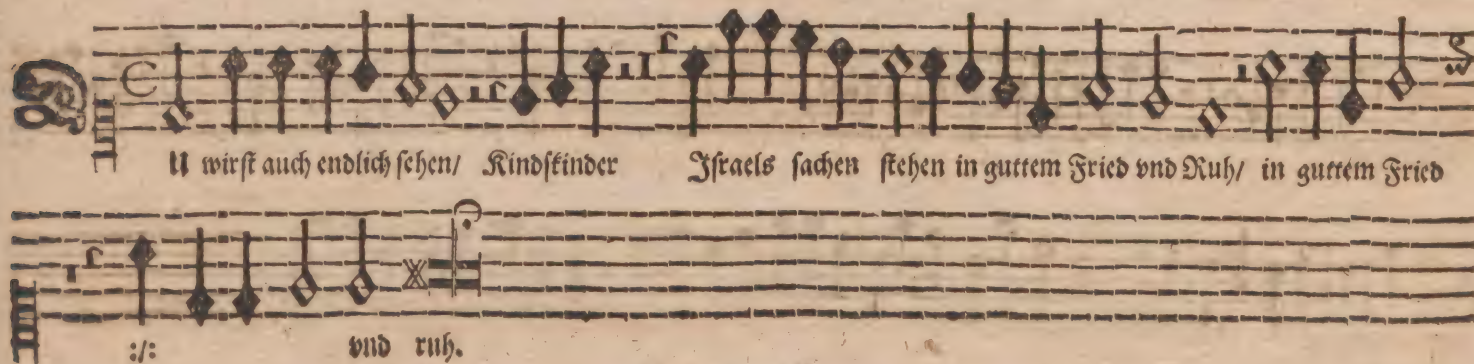 DU wirſt auch endlich ſehen/ Kindſkinder Iſraels ſachen ſtehen in guttem Fried vnd Ruh/ in guttem Fried
:/: vnd ruh.